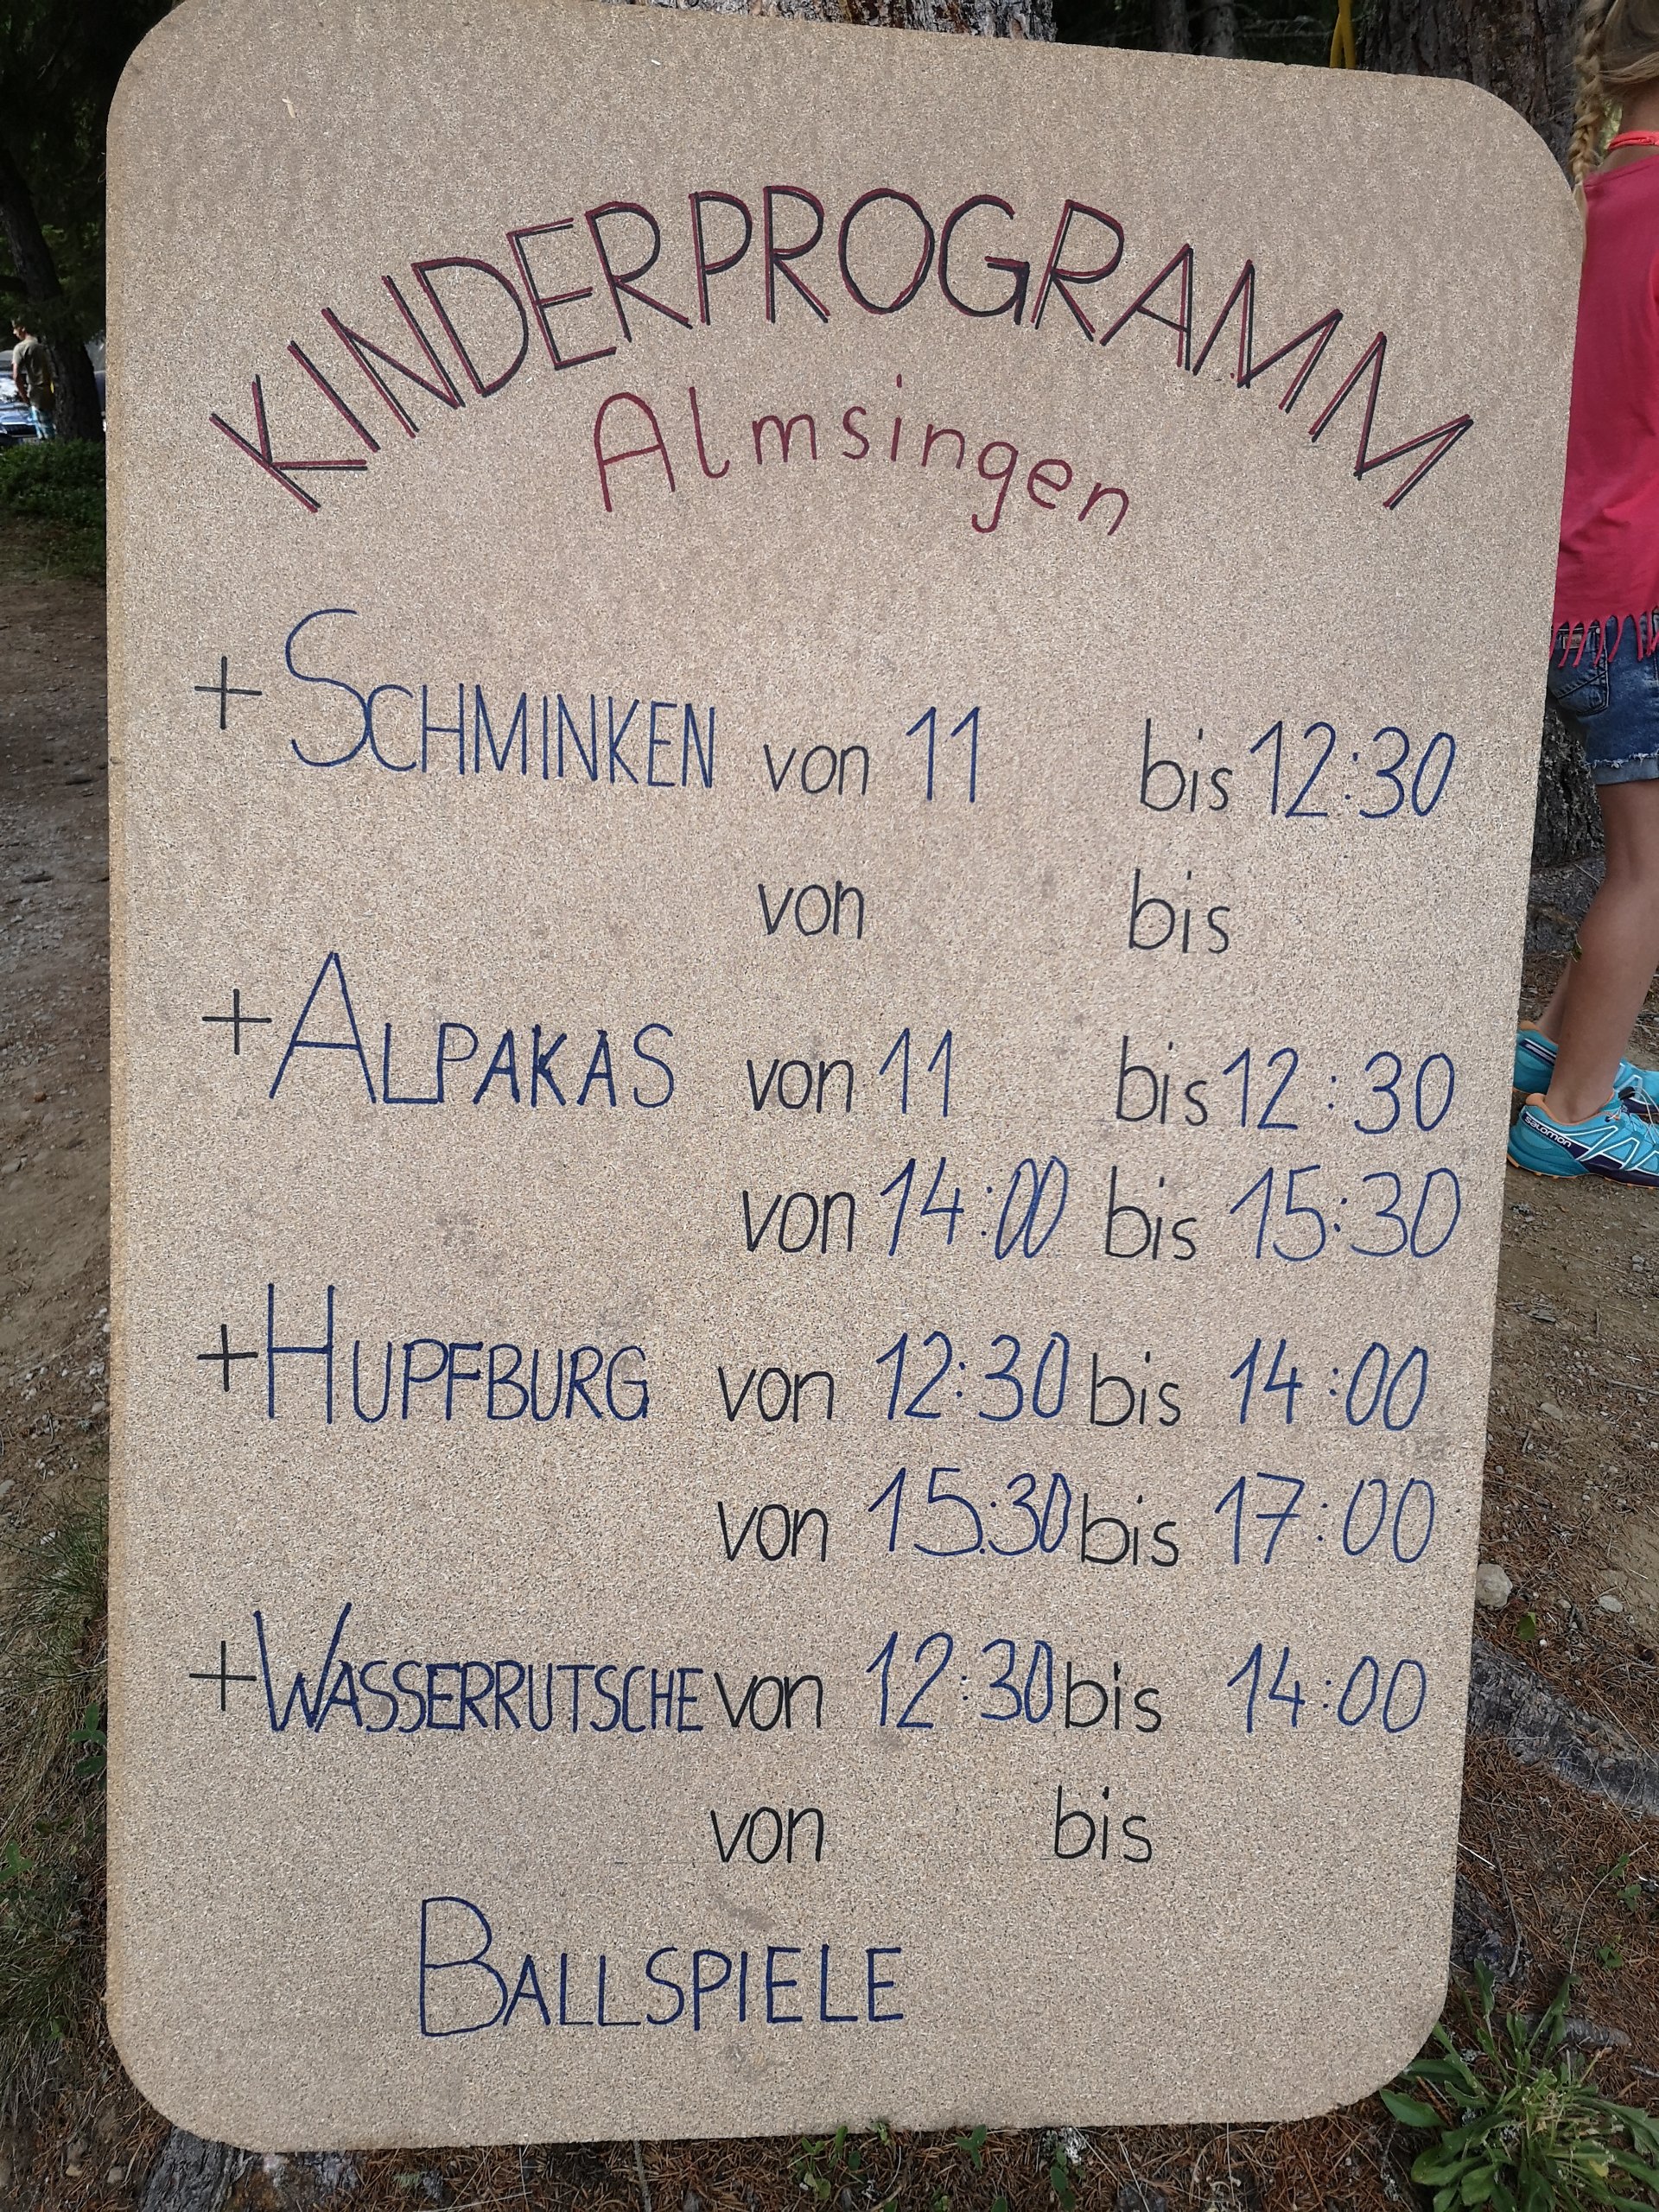 KINDERPROGRAMM
Almsingen
+ SCHMINKEN von 11 bis 12:30
von bis
+ ALPAKAS von 11 bis 12:30
von 14:00 bis 15:30
+ HUPFBURG von 12:30 bis 14:00
von 15:30 bis 17:00
+ WASSERRUTSCHE von 12:30 bis 14:00
von bis
BALLSPIELE
salomon